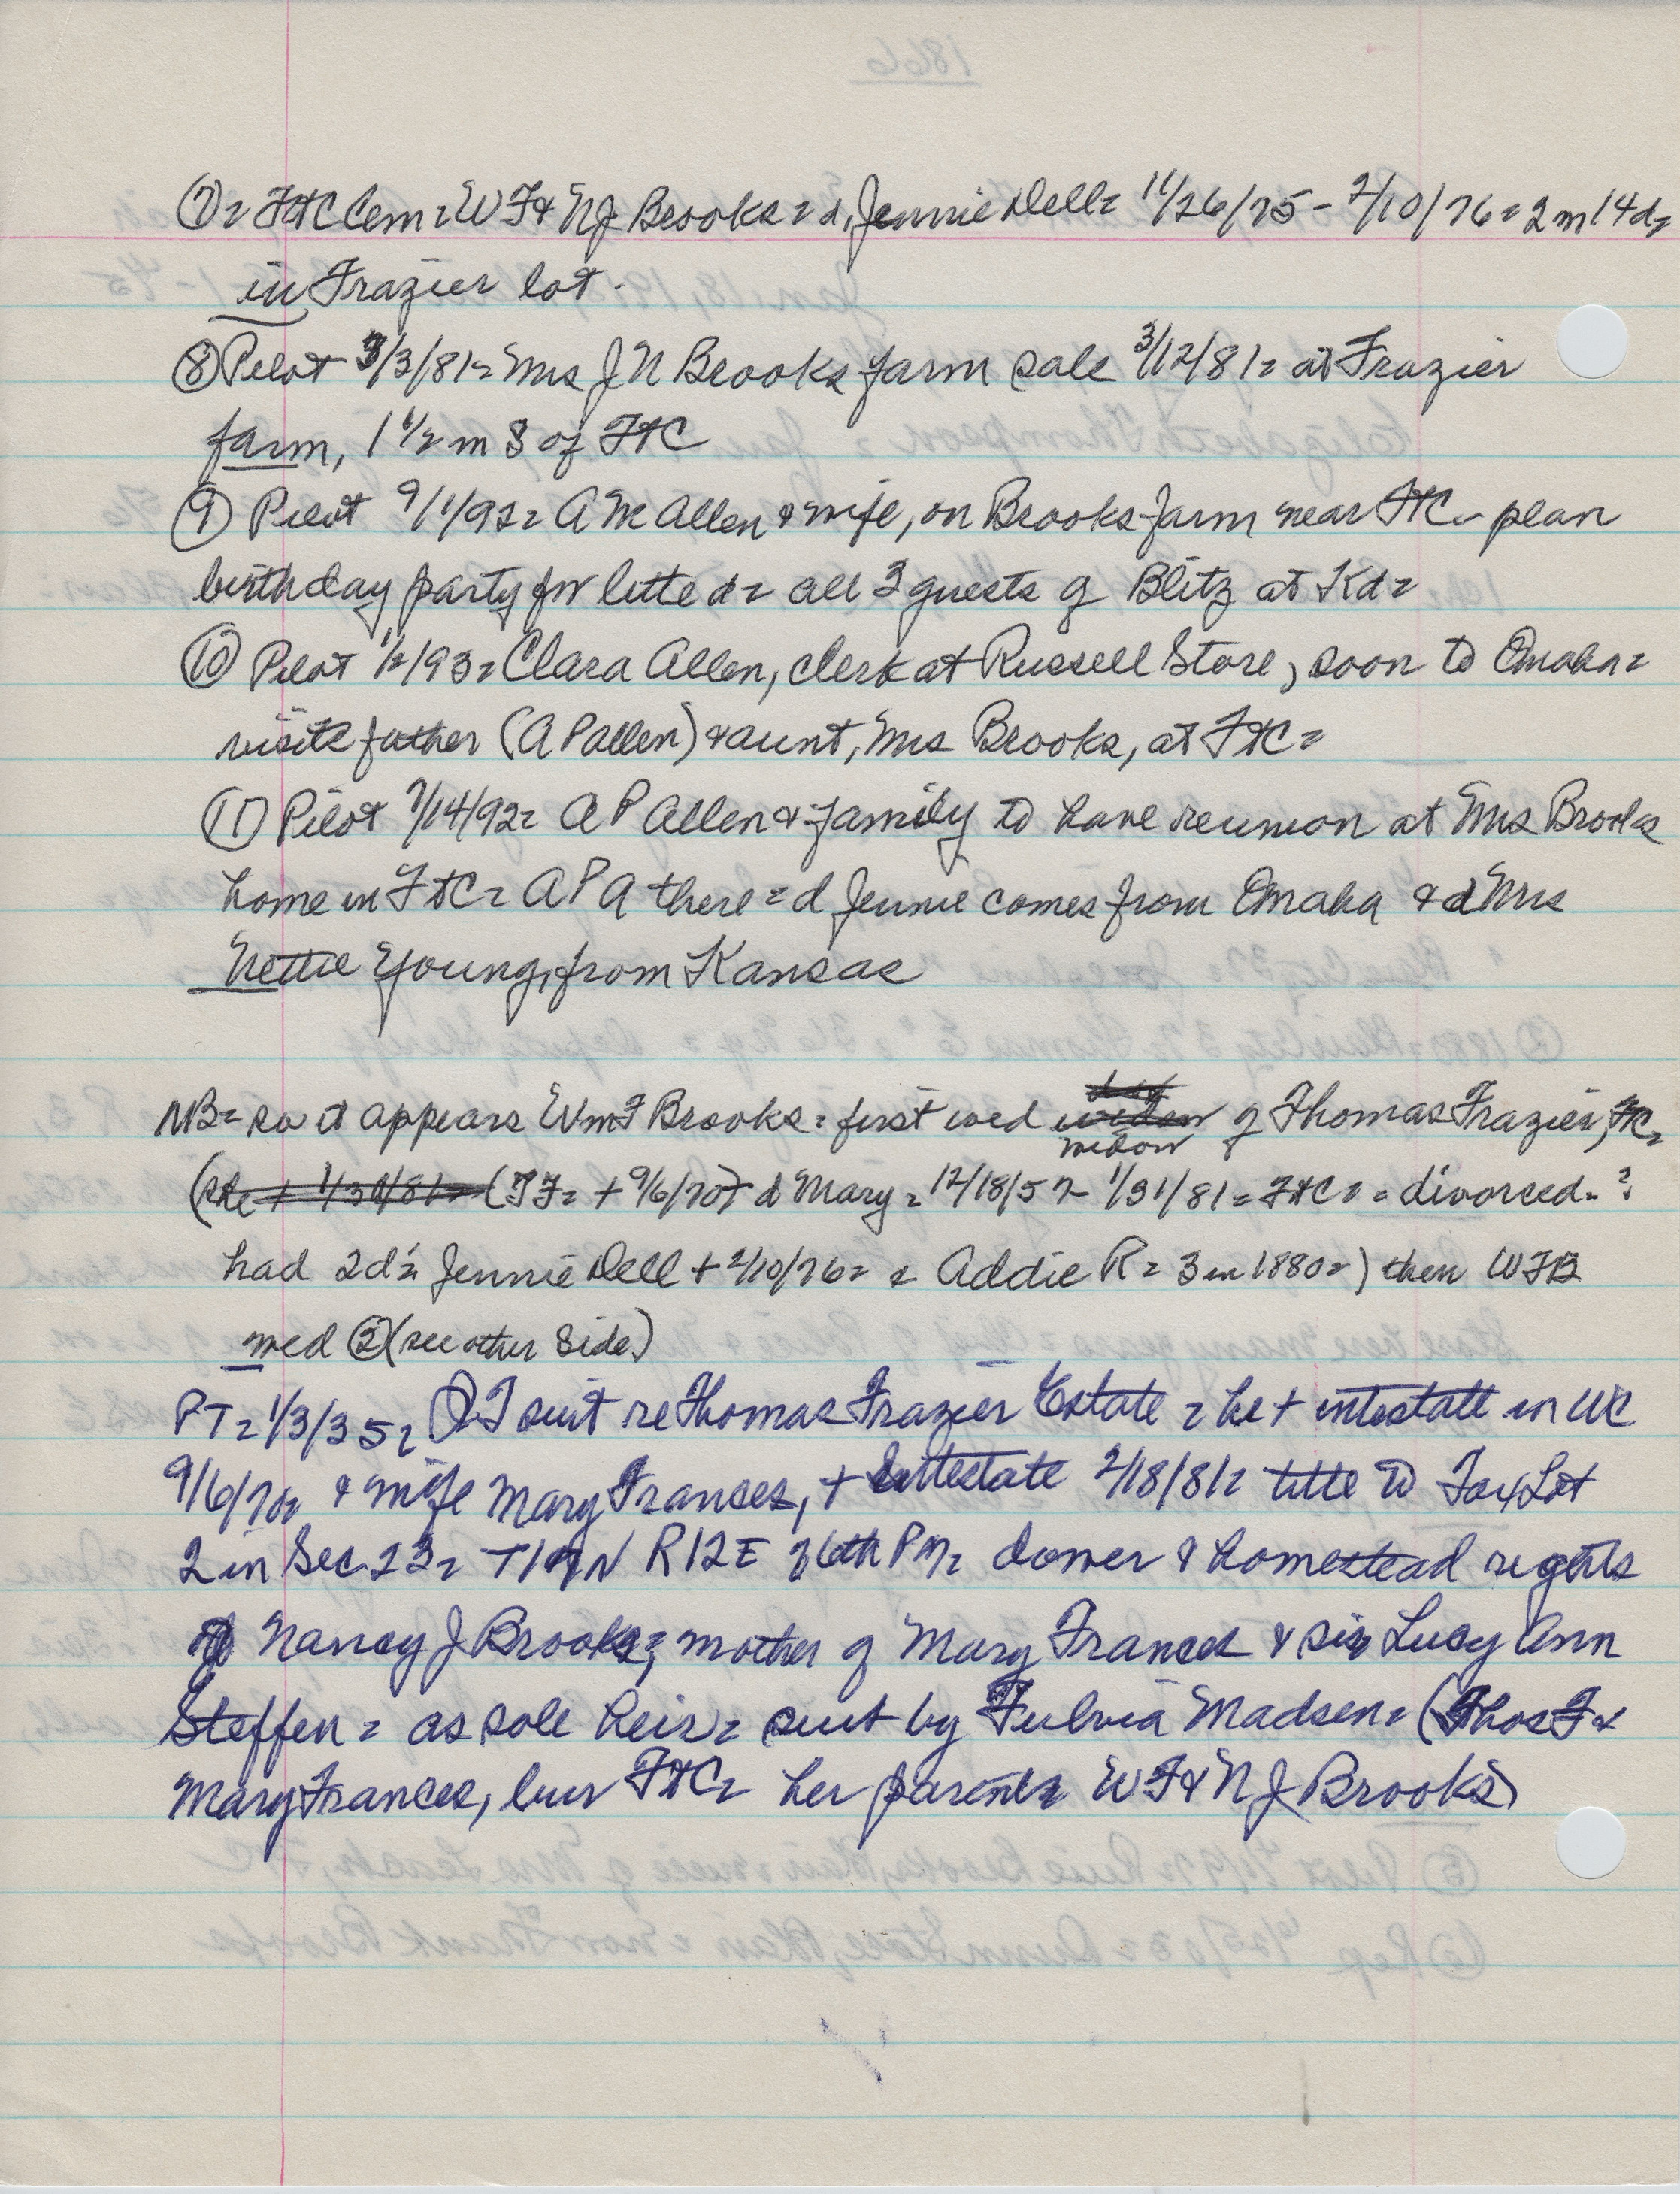 ⑦= FtC Cem = W F & N J Brooks = d, Jennie Dell = 11/26/75 - 2/10/76 = 2 m 14 d =
in Frazier lot.
⑧ Pilot 3/3/81 = Mrs J N Brooks farm sale 3/12/81 = at Frazier
farm, 1 1/2 m S of FtC
⑨ Pilot 9/1/92 = A M Allen & wife, on Brooks farm near FtC - plan
birthday party for little d = all 3 guests of Blitz at Kd =
⑩ Pilot 1/2/93 = Clara Allen, clerk at Russell Store, soon to Omaha =
visits father (A P Allen) & aunt, Mrs Brooks, at FtC =
⑪ Pilot 7/14/92 = A P Allen & family to have reunion at Mrs Brooks
home in FtC = A P A there = d Jennie comes from Omaha & d Mrs
Nettie Young, from Kansas
NB = so it appears Wm F Brooks = first wed widow of Thomas Frazier, FtC =
(she + 1/30/81 = (TF = + 9/6/70) d Mary = 12/18/57 - 1/31/81 = FtC = = divorced - ?
had 2 d's Jennie Dell + 2/10/76 = & Addie R = 3 in 1880 =) then WFB
wed ② (see other side)
PT = 1/3/35 = QT suit re Thomas Frazier Estate = he + intestate in WC
9/6/70 & wife Mary Frances, + intestate 2/18/81 = title to Tax Lot
2 in Sec 23 = T17N R12E of 6th PM = dower & homestead rights
of Nancy J Brooks, mother of Mary Frances & sis Lucy Ann
Steffen = as sole heirs = suit by Fulvia Madsen = (Thos F &
Mary Frances, bur FtC = her parents W F & N J Brooks)